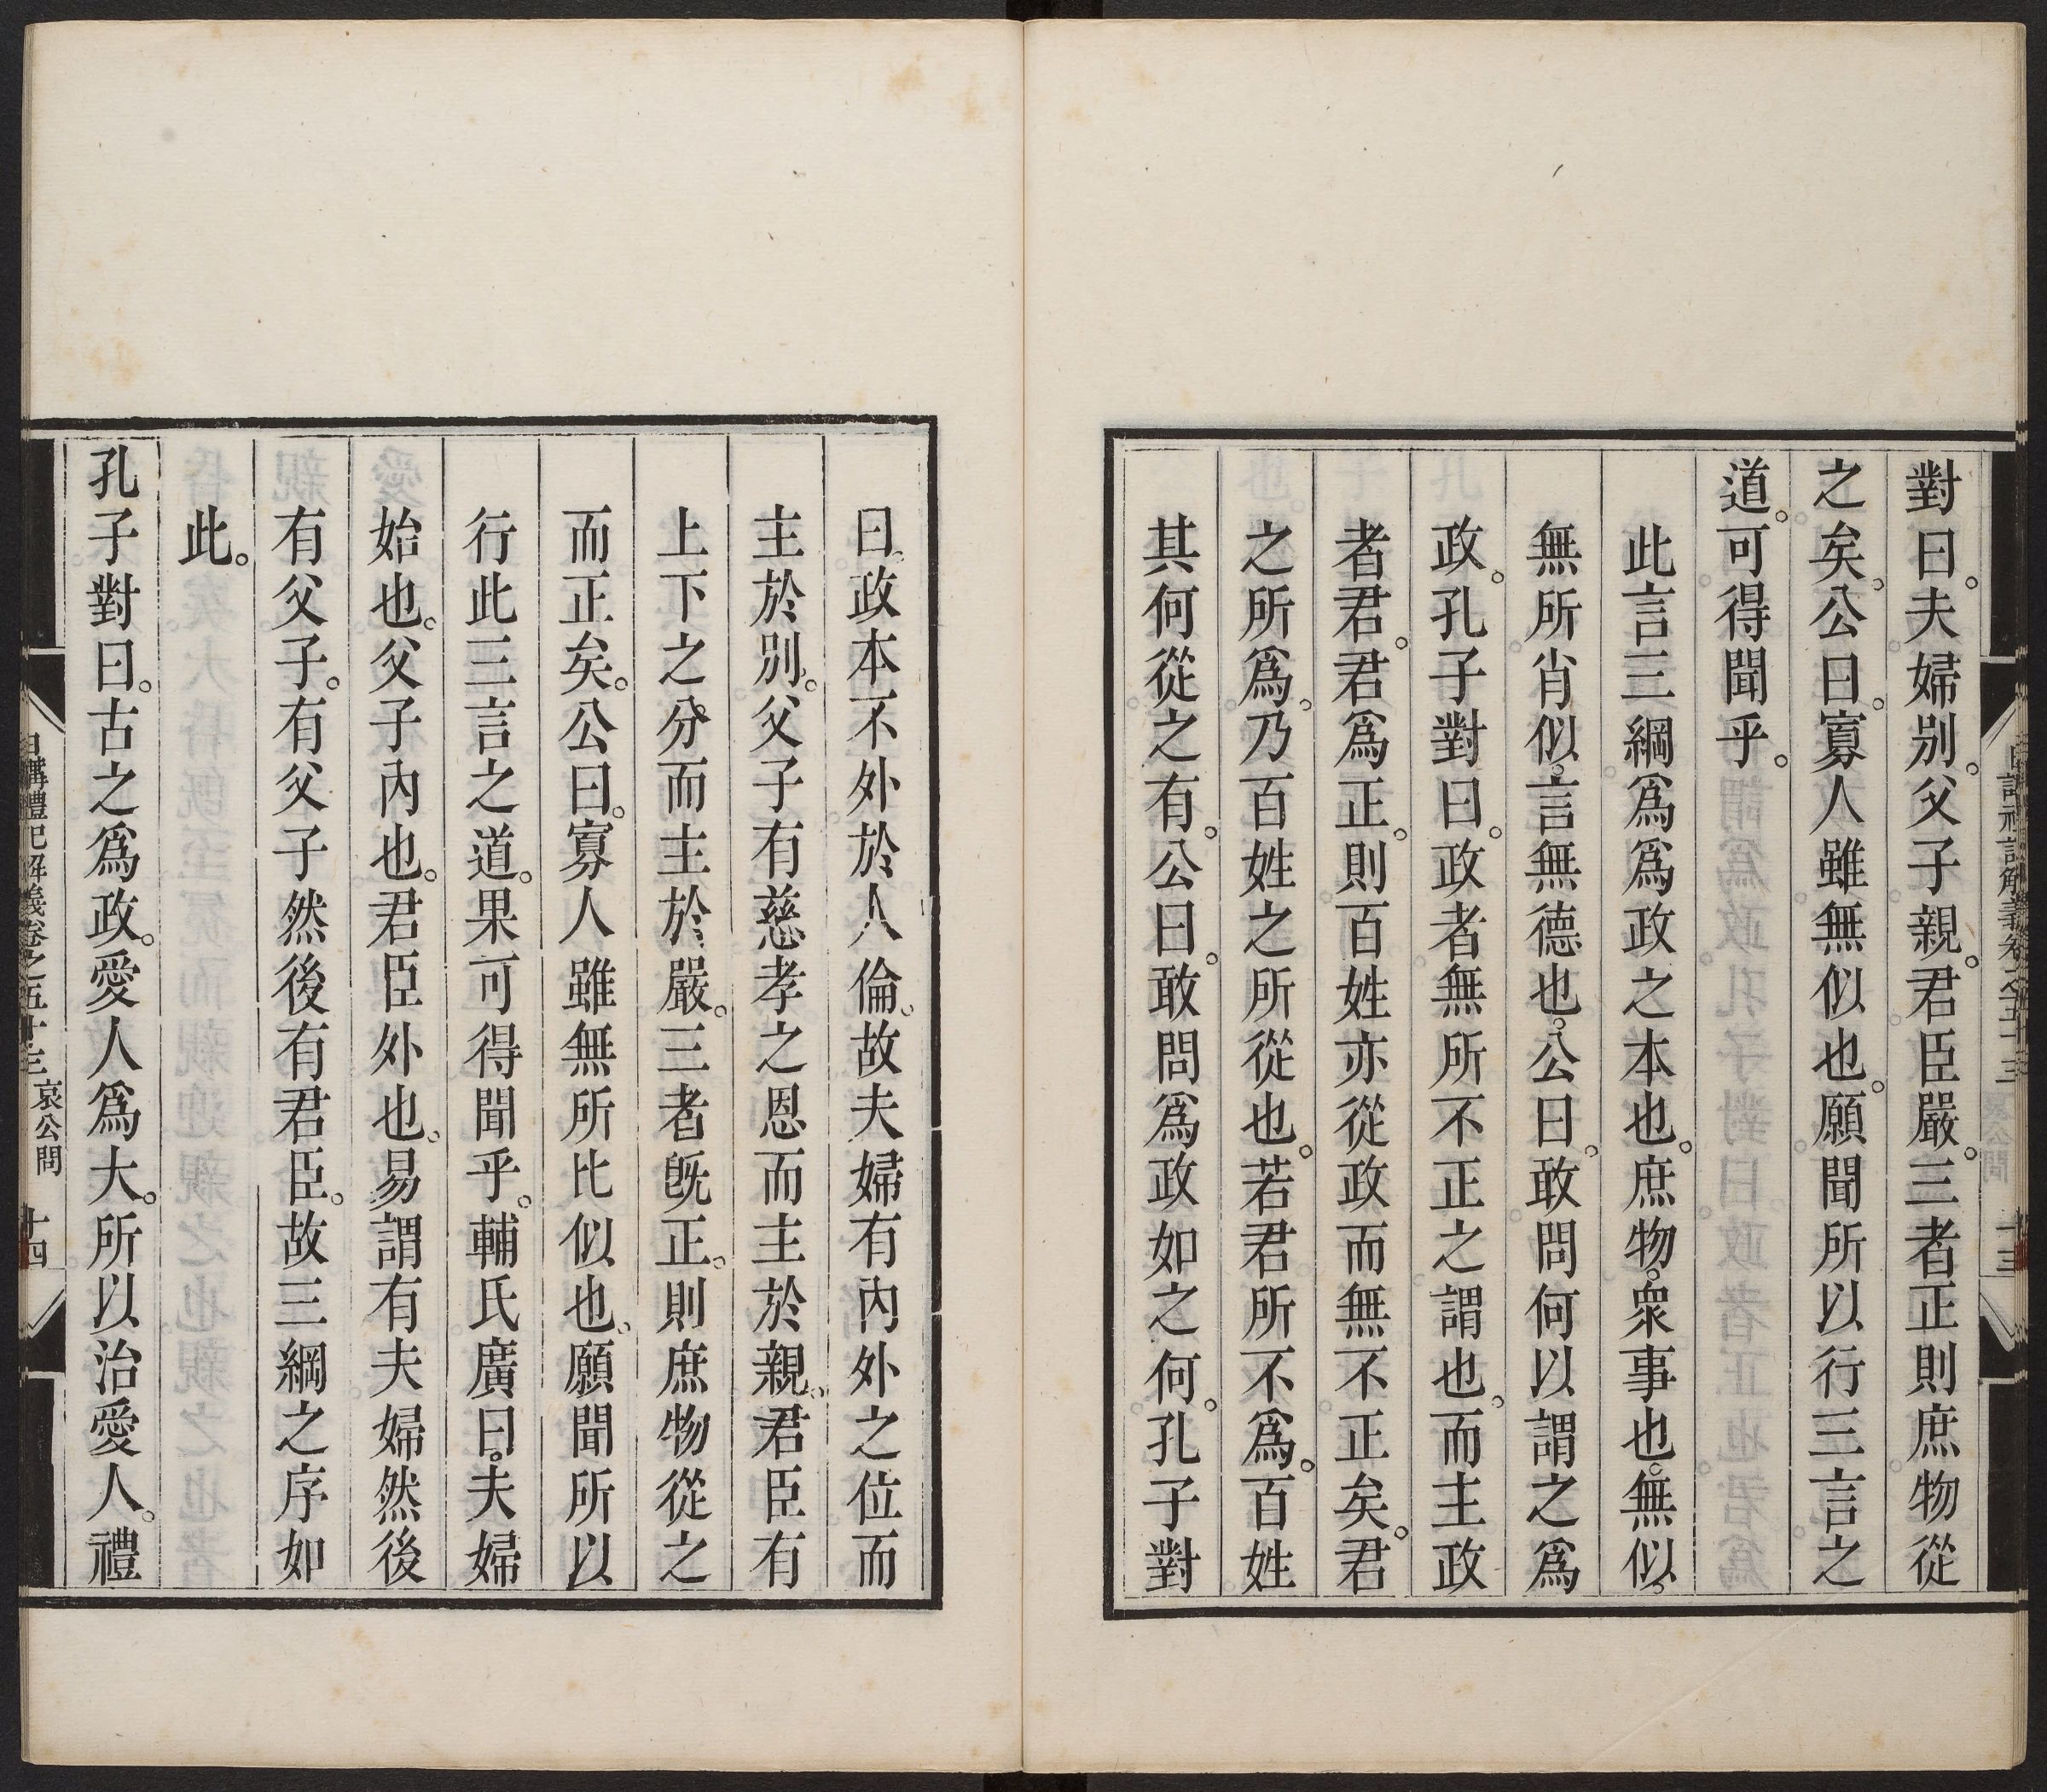 對曰。夫婦別。父子親。君臣嚴。三者正則庶物從
之矣。公曰。寡人雖無似也。願聞所以行三言之
道。可得聞乎。
此言三綱爲爲政之本也。庶物。衆事也。無似。
無所肖似。言無德也。公曰。敢問何以謂之爲
政。孔子對曰。政者無所不正之謂也。而主政
者君。君爲正。則百姓亦從政而無不正矣。君
之所爲。乃百姓之所從也。若君所不爲。百姓
其何從之有。公曰。敢問爲政如之何。孔子對
曰。政本不外於人倫。故夫婦有內外之位而
主於別。父子有慈孝之恩而主於親。君臣有
上下之分而主於嚴。三者旣正。則庶物從之
而正矣。公曰。寡人雖無所比似也。願聞所以
行此三言之道。果可得聞乎。輔氏廣曰。夫婦
始也。父子內也。君臣外也。易謂有夫婦然後
有父子。有父子然後有君臣。故三綱之序如
此。
孔子對曰。古之爲政。愛人爲大。所以治愛人。禮
日講禮記解義卷之五十三 哀公問 十四